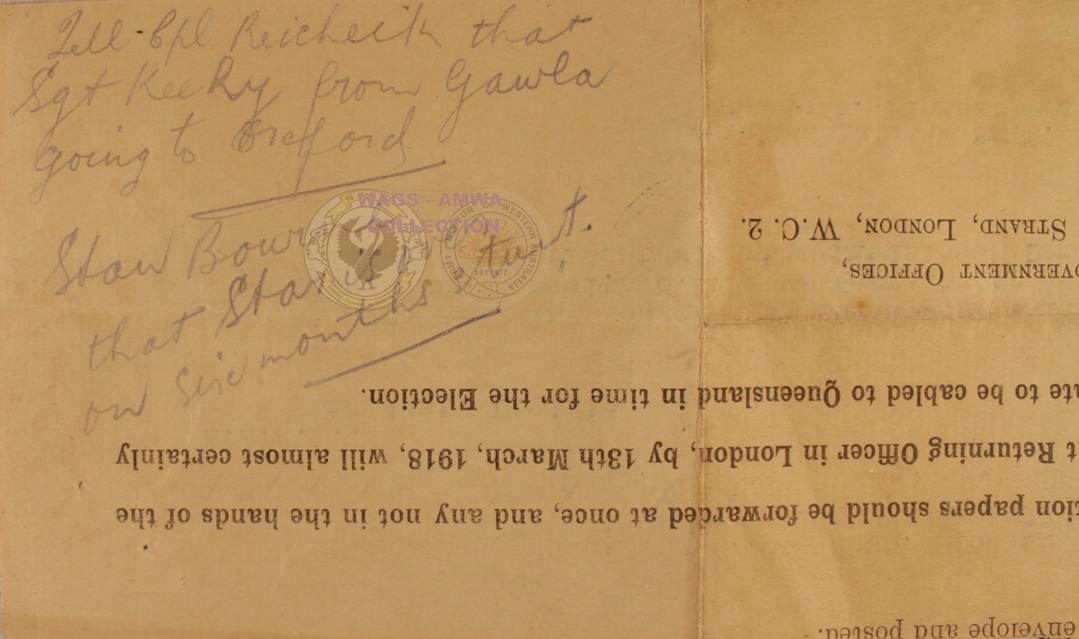 Tell Cpl Reicheik that
Sgt Keeky from Gawla
going to Oxford
Stan Bow
that Stan is
on six months
WAGS - AMWA
COLLECTION
envelope and posted.
tion papers should be forwarded at once, and any not in the hands of the
t Returning Officer in London, by 13th March, 1918, will almost certainly
ate to be cabled to Queensland in time for the Election.
OVERNMENT OFFICES,
STRAND, LONDON, W.C. 2.